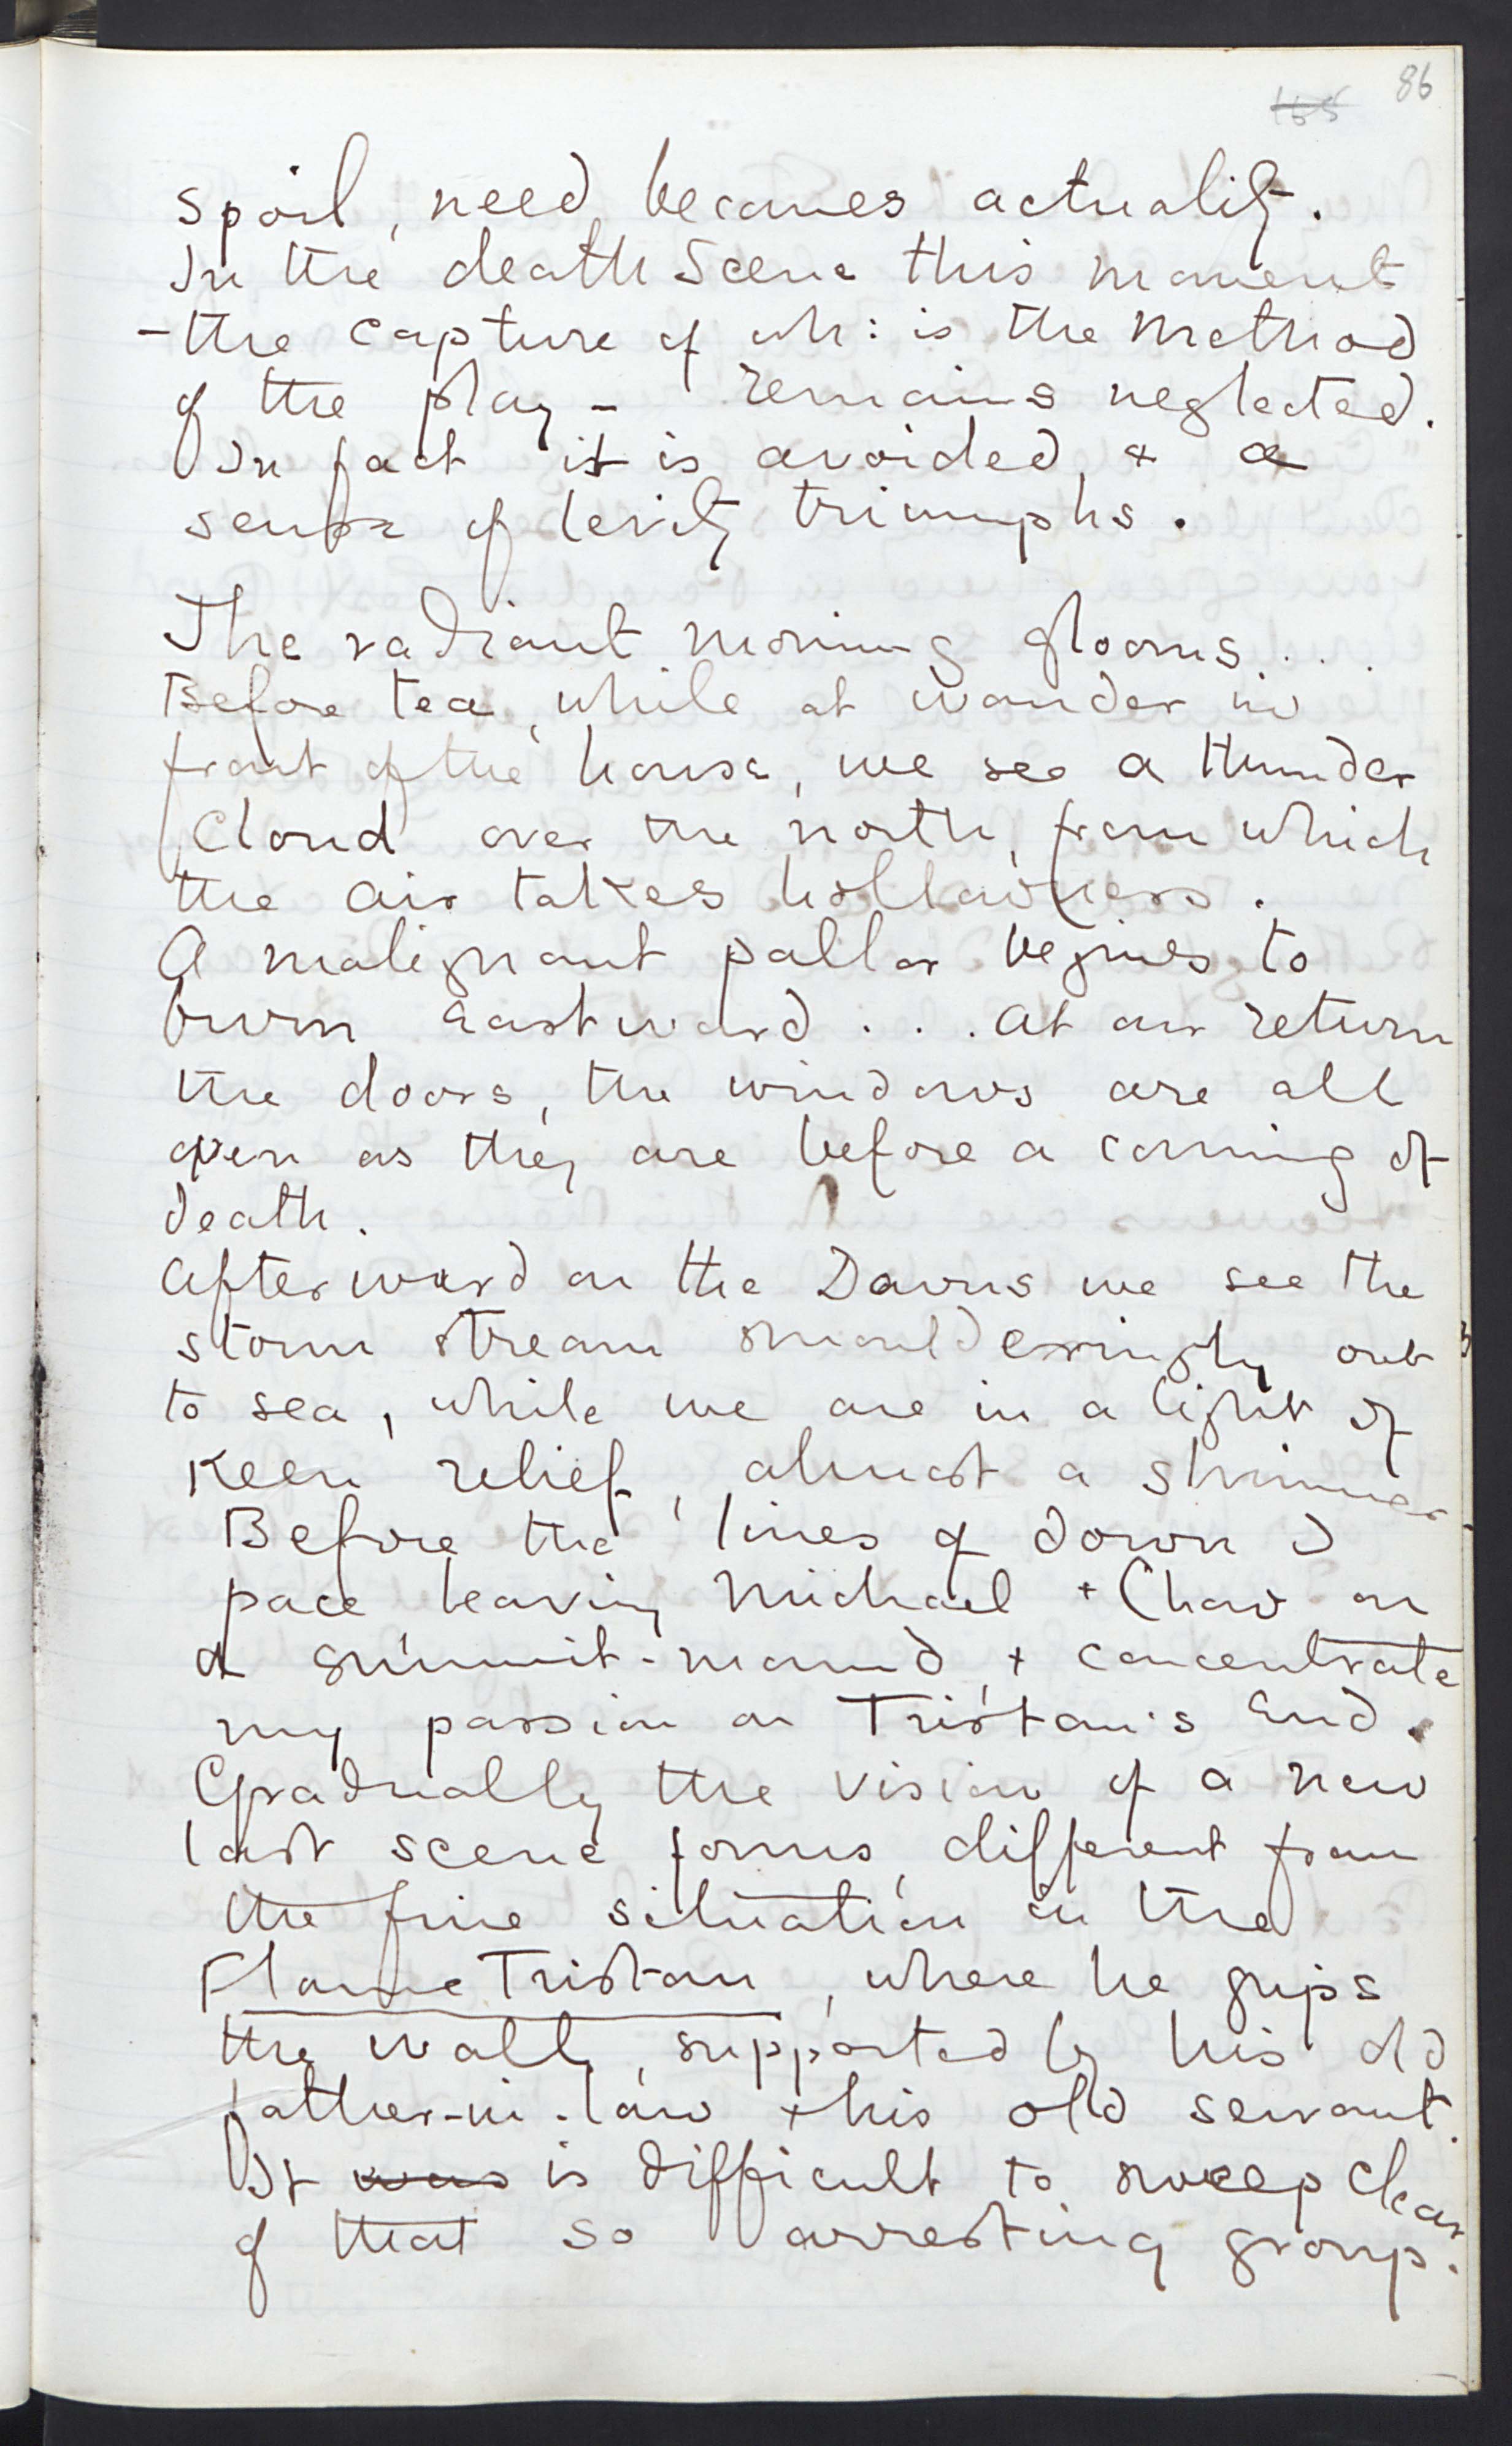 86
165
spoil, need becomes actuality.
In the death Scene this moment
- the capture of wh: is the method
of the play - remains neglected.
In fact it is avoided, + a
sense of levity triumphs.
The radiant morning glooms...
Before tea, while at wander in
front of the house, we see a thunder
cloud over the north, from which
the air takes hollowness.
A malignant pallor begins to
burn eastward . . . At our return
the doors, the windows are all
open as they are before a coming of
death.
Afterward on the Downs we see the
storm stream smoulderingly out
to sea, while we are in a light of
keen relief, almost a shimmer
Before the lines of down I
pace leaving Michael + Chow on
a summit-mound, + concentrate
my passion on Tristan's End.
Gradually the vision of a new
last scene forms, different from
the fine situation in the
Flame Tristan, where he grips
the wall, supported by his old
father-in-law + his old servant.
It was is difficult to sweep clear
of that so arresting group.